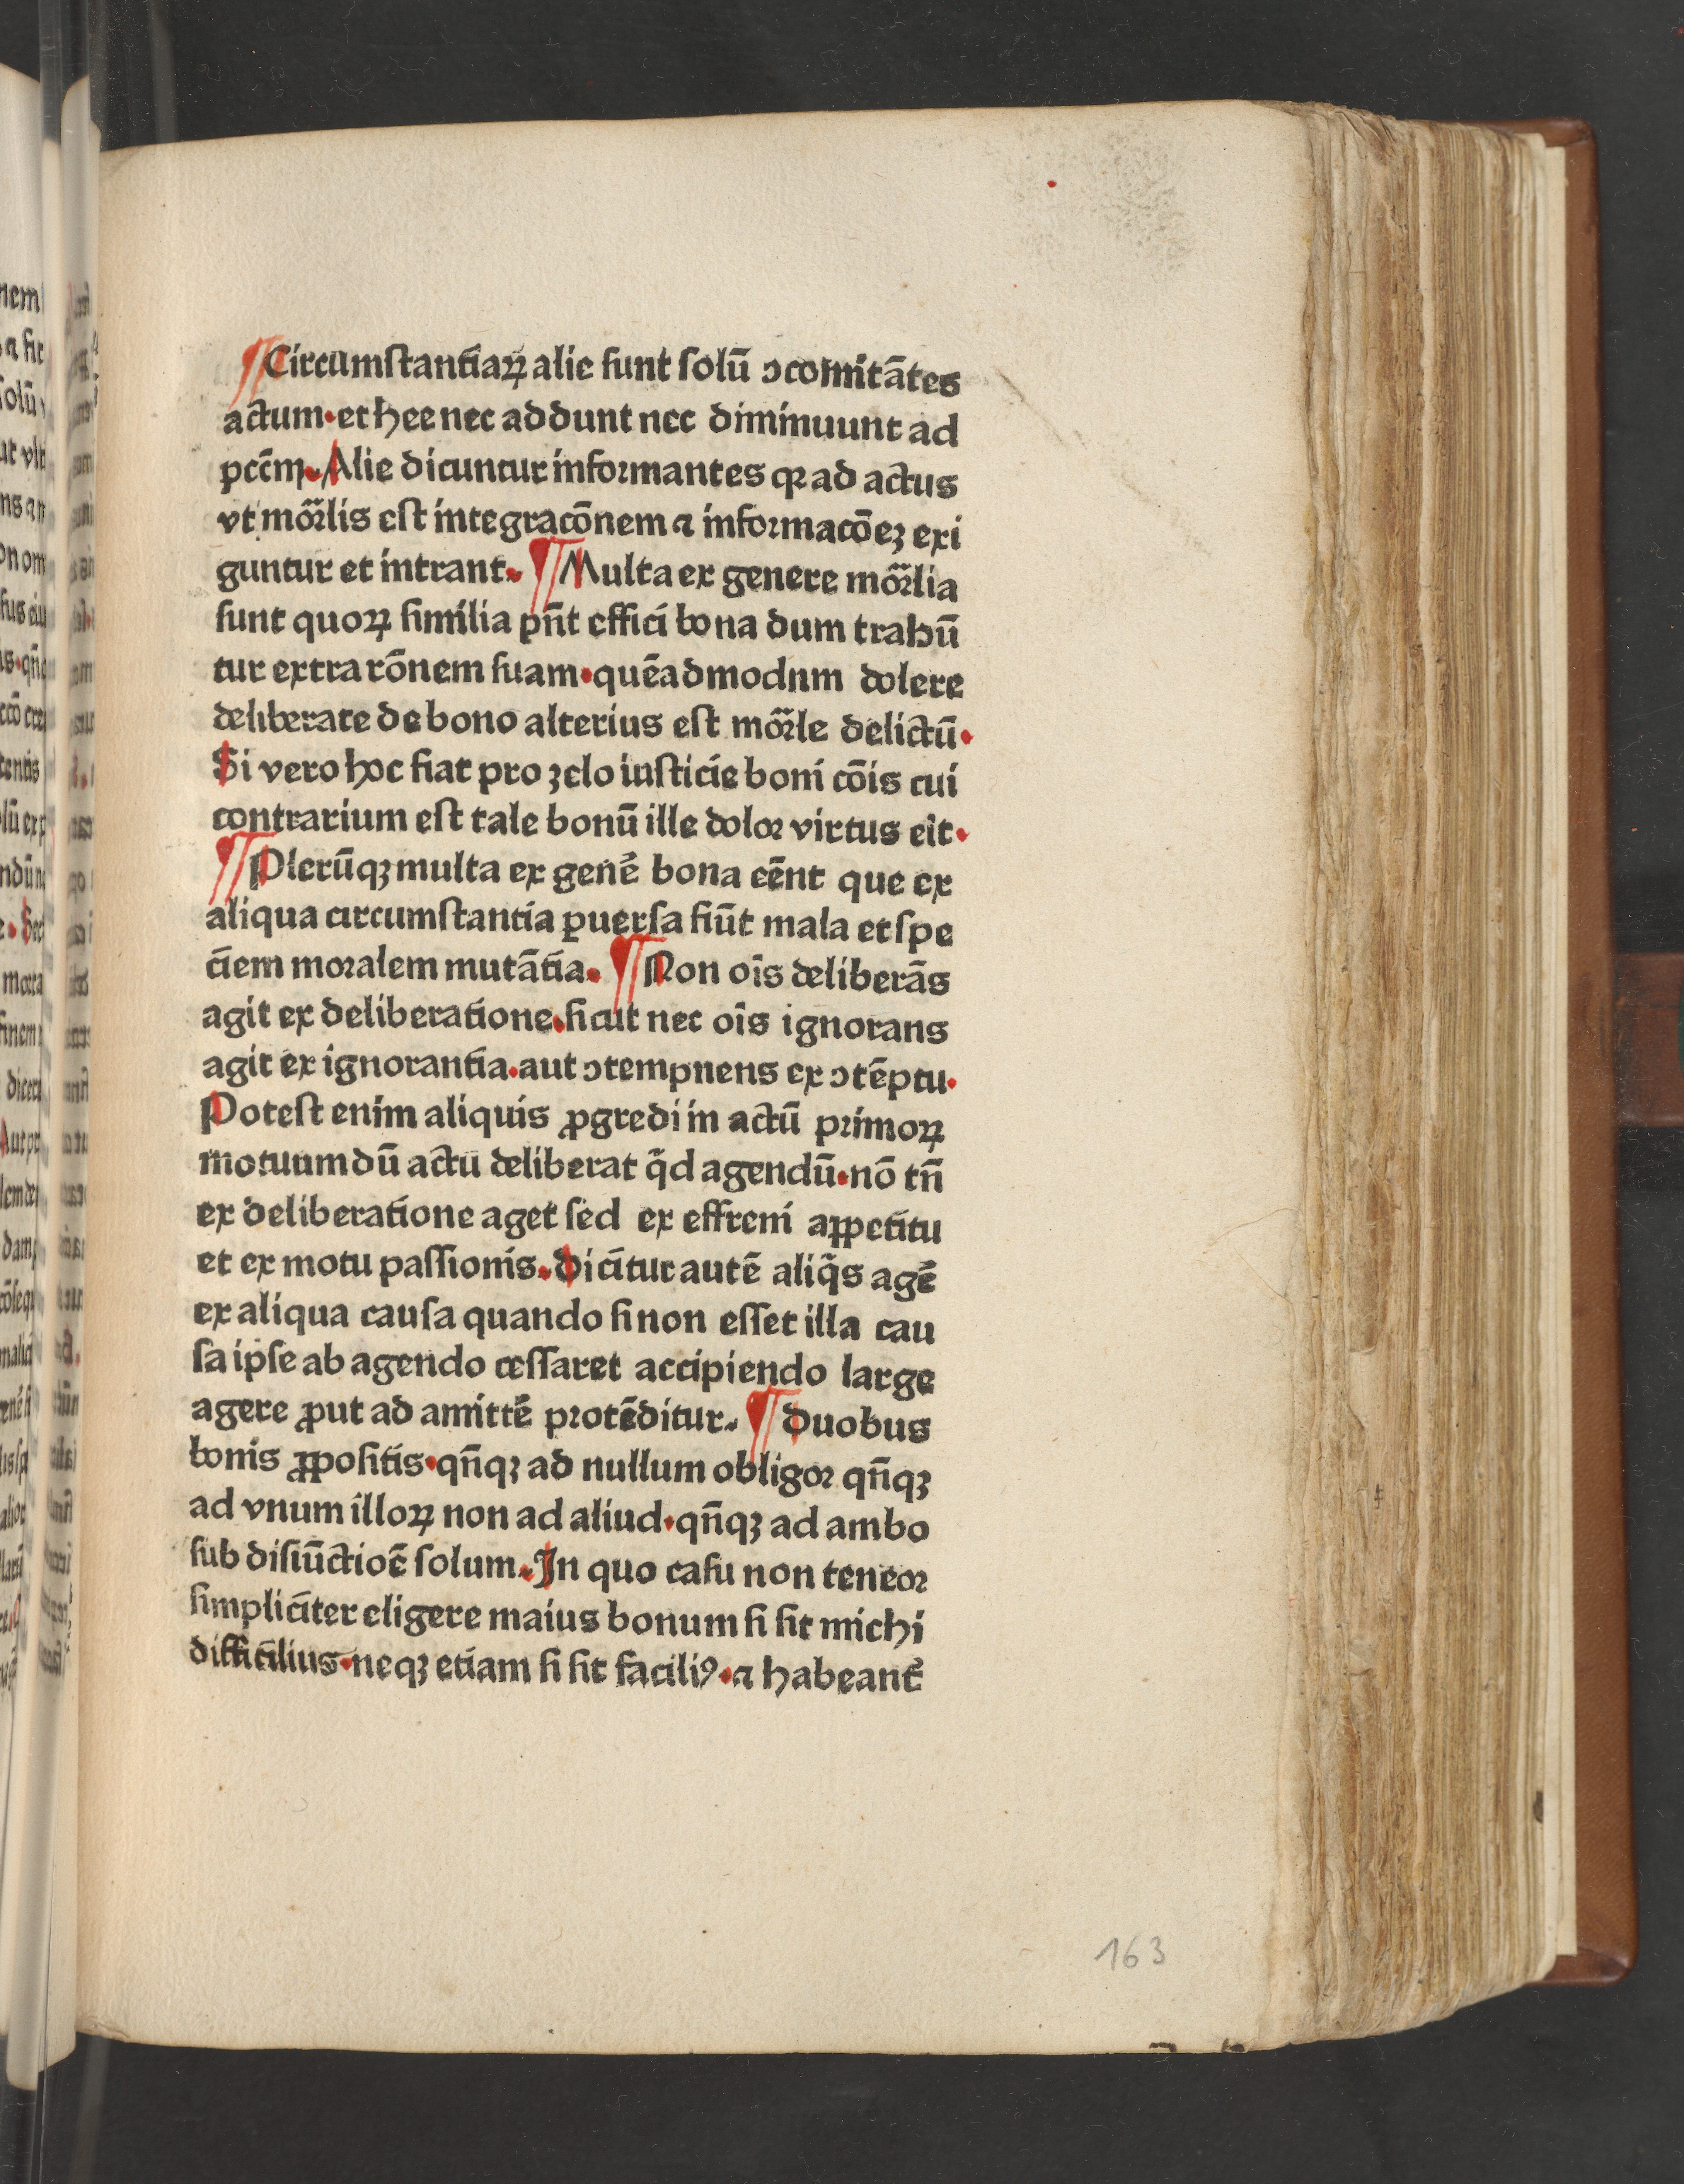 ¶Circumſtantiaꝝ alie ſunt ſolū ↄcomitātes
actum·et hee nec addunt nec diminuunt ad
pctm̄·Alie dicuntur informantes qꝛ ad actus
vt mor̄lis eſt integracōnem ⁊ informacōeꝫ exi
guntur et intrant·¶Multa ex genere mor̄lia
ſunt quoꝝ ſimilia pn̄t effici bona dum trahū
tur extra rōnem ſuam·quēadmodnm dolere
deliberate de bono alterius eſt mor̄le delictū·
Si vero hoc fiat pro ʒelo iuſticie boni cōis cui
contrarium eſt tale bonū ille dolor virtus eīt·
¶Plerūqꝫ multa ex genē bona cēnt que ex
aliqua circumſtantia ꝑuerſa fiūt mala et ſpe
ciem moralem mutātia·¶Non oīs deliberās
agit ex deliberatione·ſicut nec oīs ignorans
agit ex ignorantia·aut ↄtempnens ex ↄtēptu·
Poteſt enim aliquis ꝓgredi in actū primoꝝ
motuum dū actu deliberat qͥd agendū·nō tn̄
ex deliberatione aget ſed ex effreni appetitu
et ex motu paſſionis·Dicitur autē aliqͥs agē
ex aliqua cauſa quando ſi non eſſet illa cau
ſa ipſe ab agendo ceſſaret accipiendo large
agere ꝓut ad amittē protēditur·¶Duobus
bonis ꝓpoſitis·qn̄qꝫ ad nullum obligor qn̄qꝫ
ad vnum illoꝝ non ad aliud·qn̄qꝫ ad ambo
ſub diſiūctioē ſolum·In quo caſu non teneor
ſimpliciter eligere maius bonum ſi ſit michi
difficilius·neqꝫ etiam ſi ſit faciliꝰ·⁊ habeant̄
163